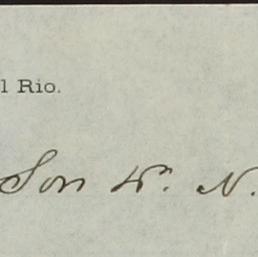 l Rio.
Son Wm. N.